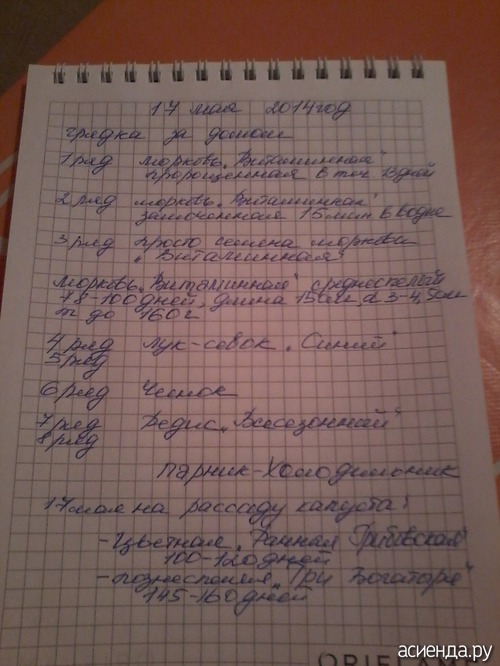 17 мая 2014год
грядка за домом
1 ряд морковь „Витаминная"
пророщенная в теч 13 дней
2 ряд морковь „Витаминная"
замоченная 15 мин в воде
3 ряд просто семена моркови
„Витаминная"
морковь „Витаминная" среднеспелый
78-100 дней, длина 15см, d 3-4,5см
m до 160г
4 ряд лук-севок „Синий"
5 ряд
6 ряд Чеснок
7 ряд Редис „Всесезонный"
8 ряд
парник-холодильник
17 мая на рассаду капуста:
- Цветная „Ранняя Грибовская"
100-120 дней
- позднеспелая „Три Богатыря"
145-160 дней
асиенда.ру